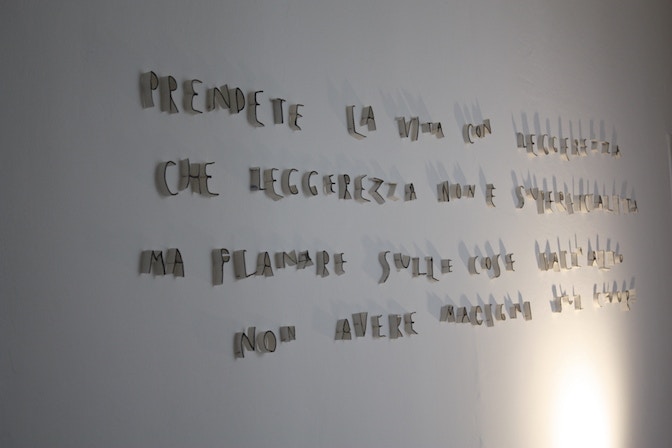 PRENDETE LA VITA CON LEGGEREZZA
CHE LEGGEREZZA NON E SUPERFICIALITA
MA PLANARE SULLE COSE DALL'ALTO
NON AVERE MACIGNI SUL CUORE